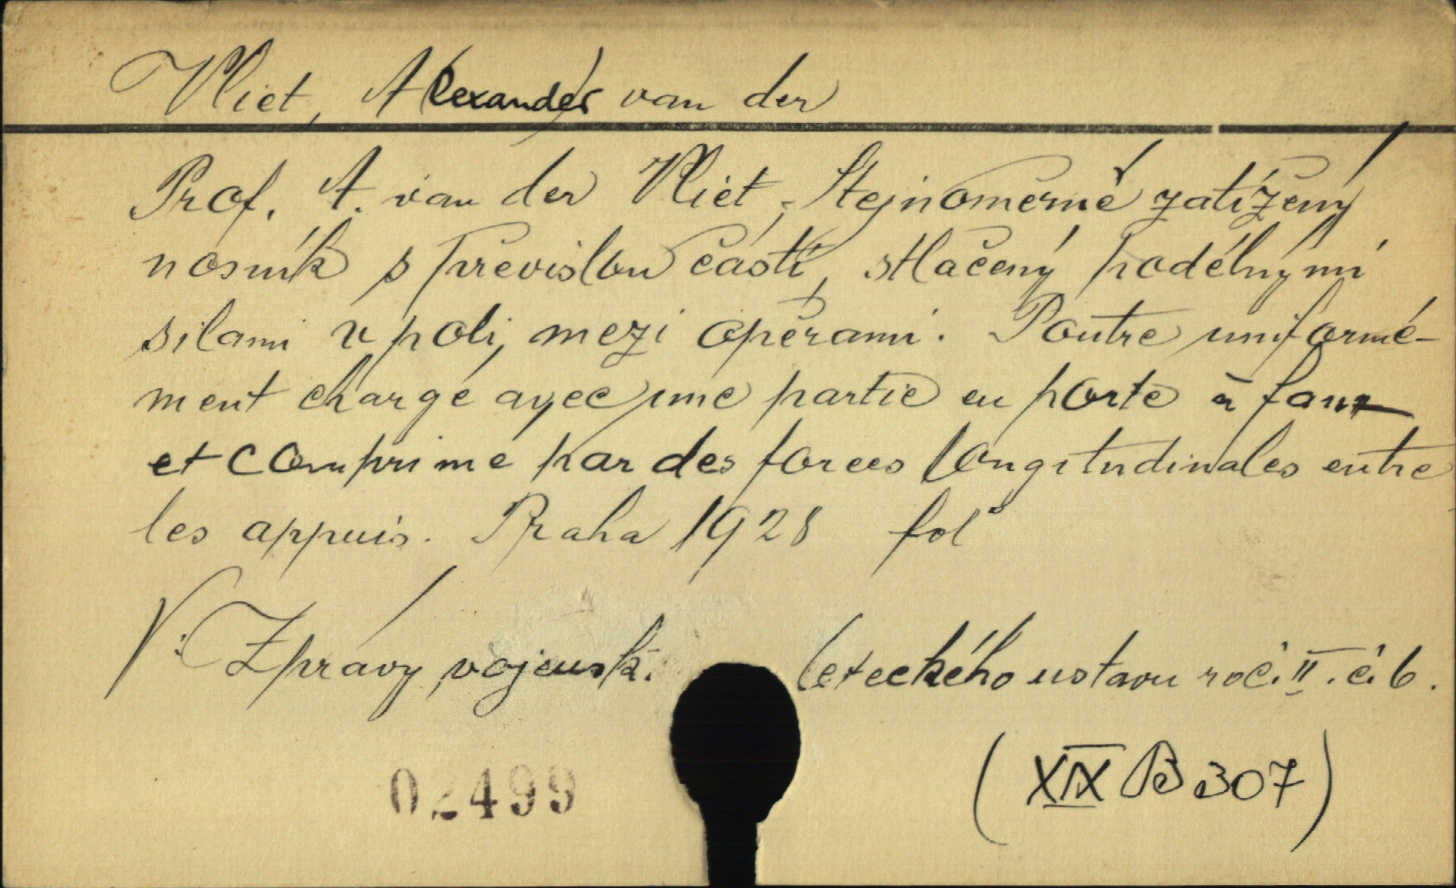 Vliet, A(lexander) van der
Prof. A. van der Vliet, Stejnoměrně zatížený
nosník s převislou částí, stlačený podélnými
silami v poli, mezi opěrami. Poutre uniformé-
ment chargé avec une partie en porte à faux
et comprimé par des forces longitudinales entre
les appuis. Praha 1928 fol°
V: Zprávy vojensk. leteckého ustavu roč. II. č. 6.
02499
(XIX B 307)